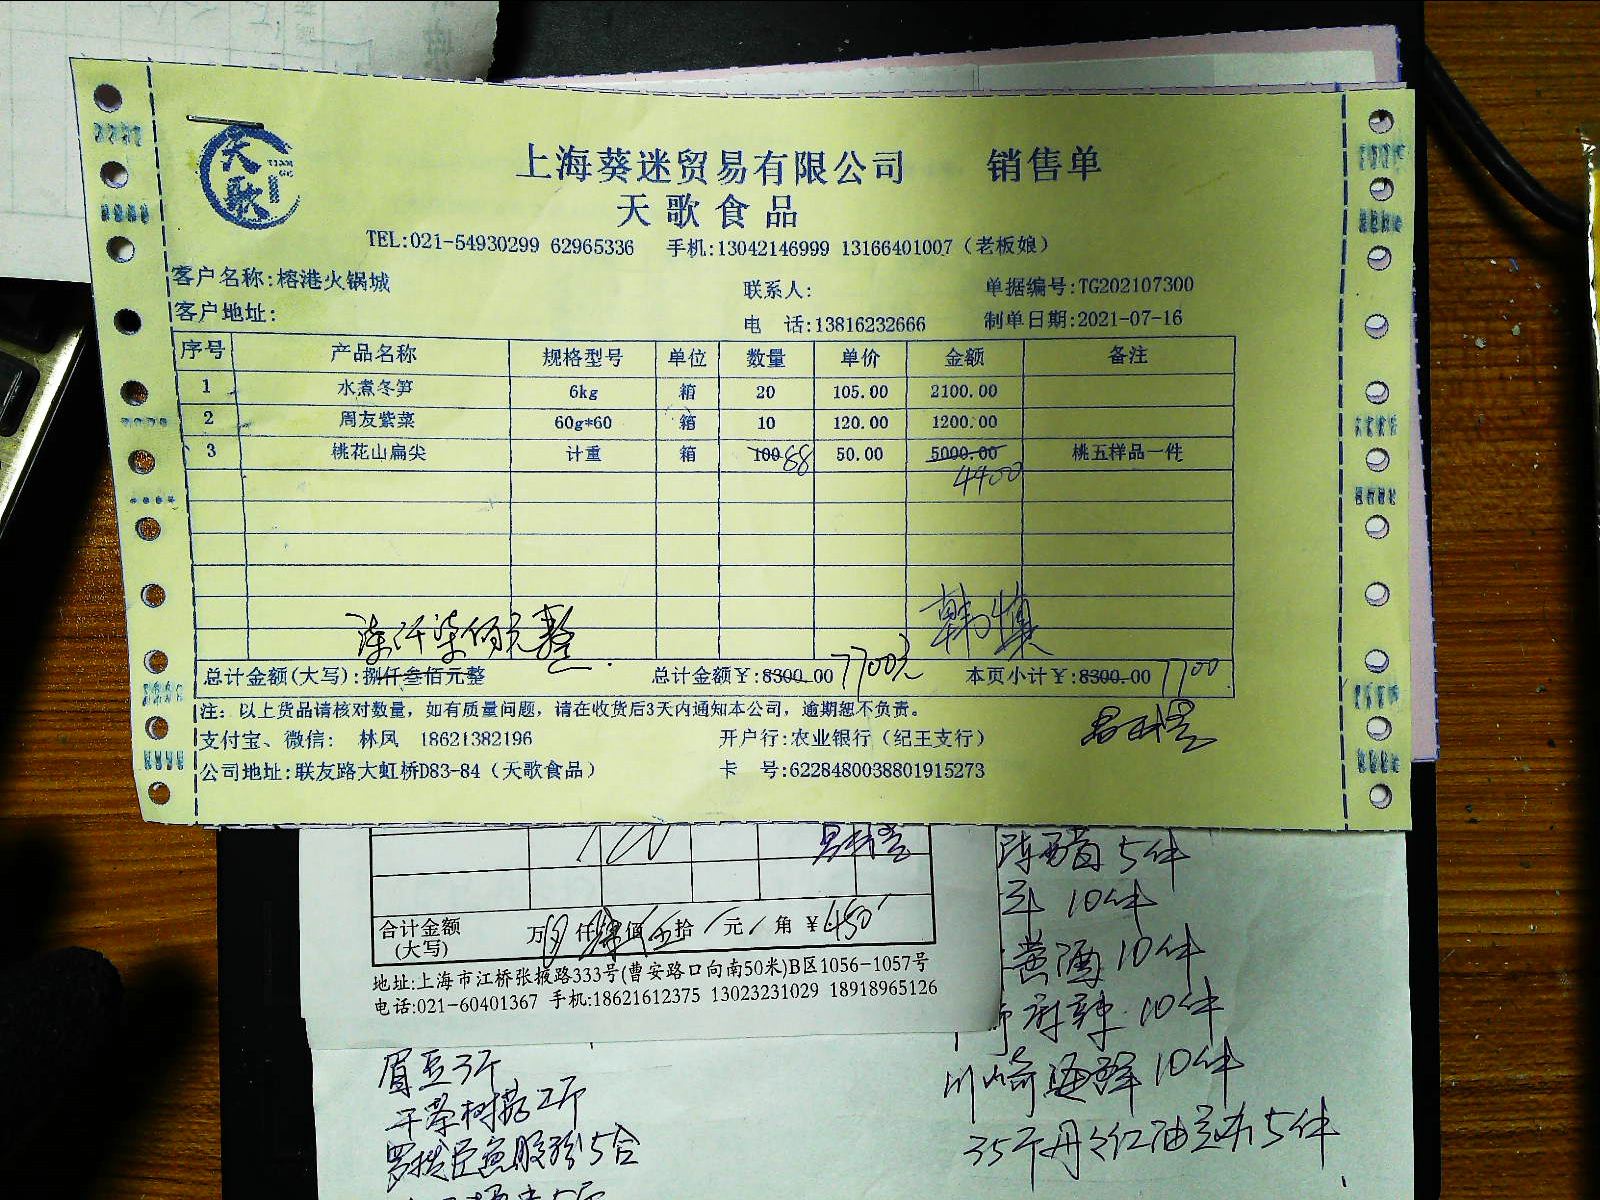 天歌 TIAN GE
上海葵迷贸易有限公司 销售单
天歌食品
TEL:021-54930299 62965336 手机:13042146999 13166401007（老板娘）
客户名称:榕港火锅城 联系人: 单据编号:TG202107300
客户地址: 电 话:13816232666 制单日期:2021-07-16
序号 产品名称 规格型号 单位 数量 单价 金额 备注
1 水煮冬笋 6kg 箱 20 105.00 2100.00
2 周友紫菜 60g*60 箱 10 120.00 1200.00
3 桃花山扁尖 计重 箱 100 88 50.00 5000.00 桃五样品一件
4400
柒仟柒佰元整
总计金额(大写):捌仟叁佰元整 总计金额￥:8300.00 7700元 本页小计￥:8300.00 7700
注: 以上货品请核对数量, 如有质量问题, 请在收货后3天内通知本公司, 逾期恕不负责。
支付宝、微信: 林凤 18621382196 开户行:农业银行（纪王支行）
公司地址:联友路大虹桥D83-84（天歌食品） 卡 号:6228480038801915273
合计金额(大写) 万 仟 佰 伍拾 元 角 ￥650
地址:上海市江桥张掖路333号(曹安路口向南50米)B区1056-1057号
电话:021-60401367 手机:18621612375 13023231029 18918965126
眉豆3斤
干茶树菇2斤
5合
陈醋5件
10件
黄酒10件
麻辣10件
川崎海鲜10件
35斤丹丹红油豆瓣5件